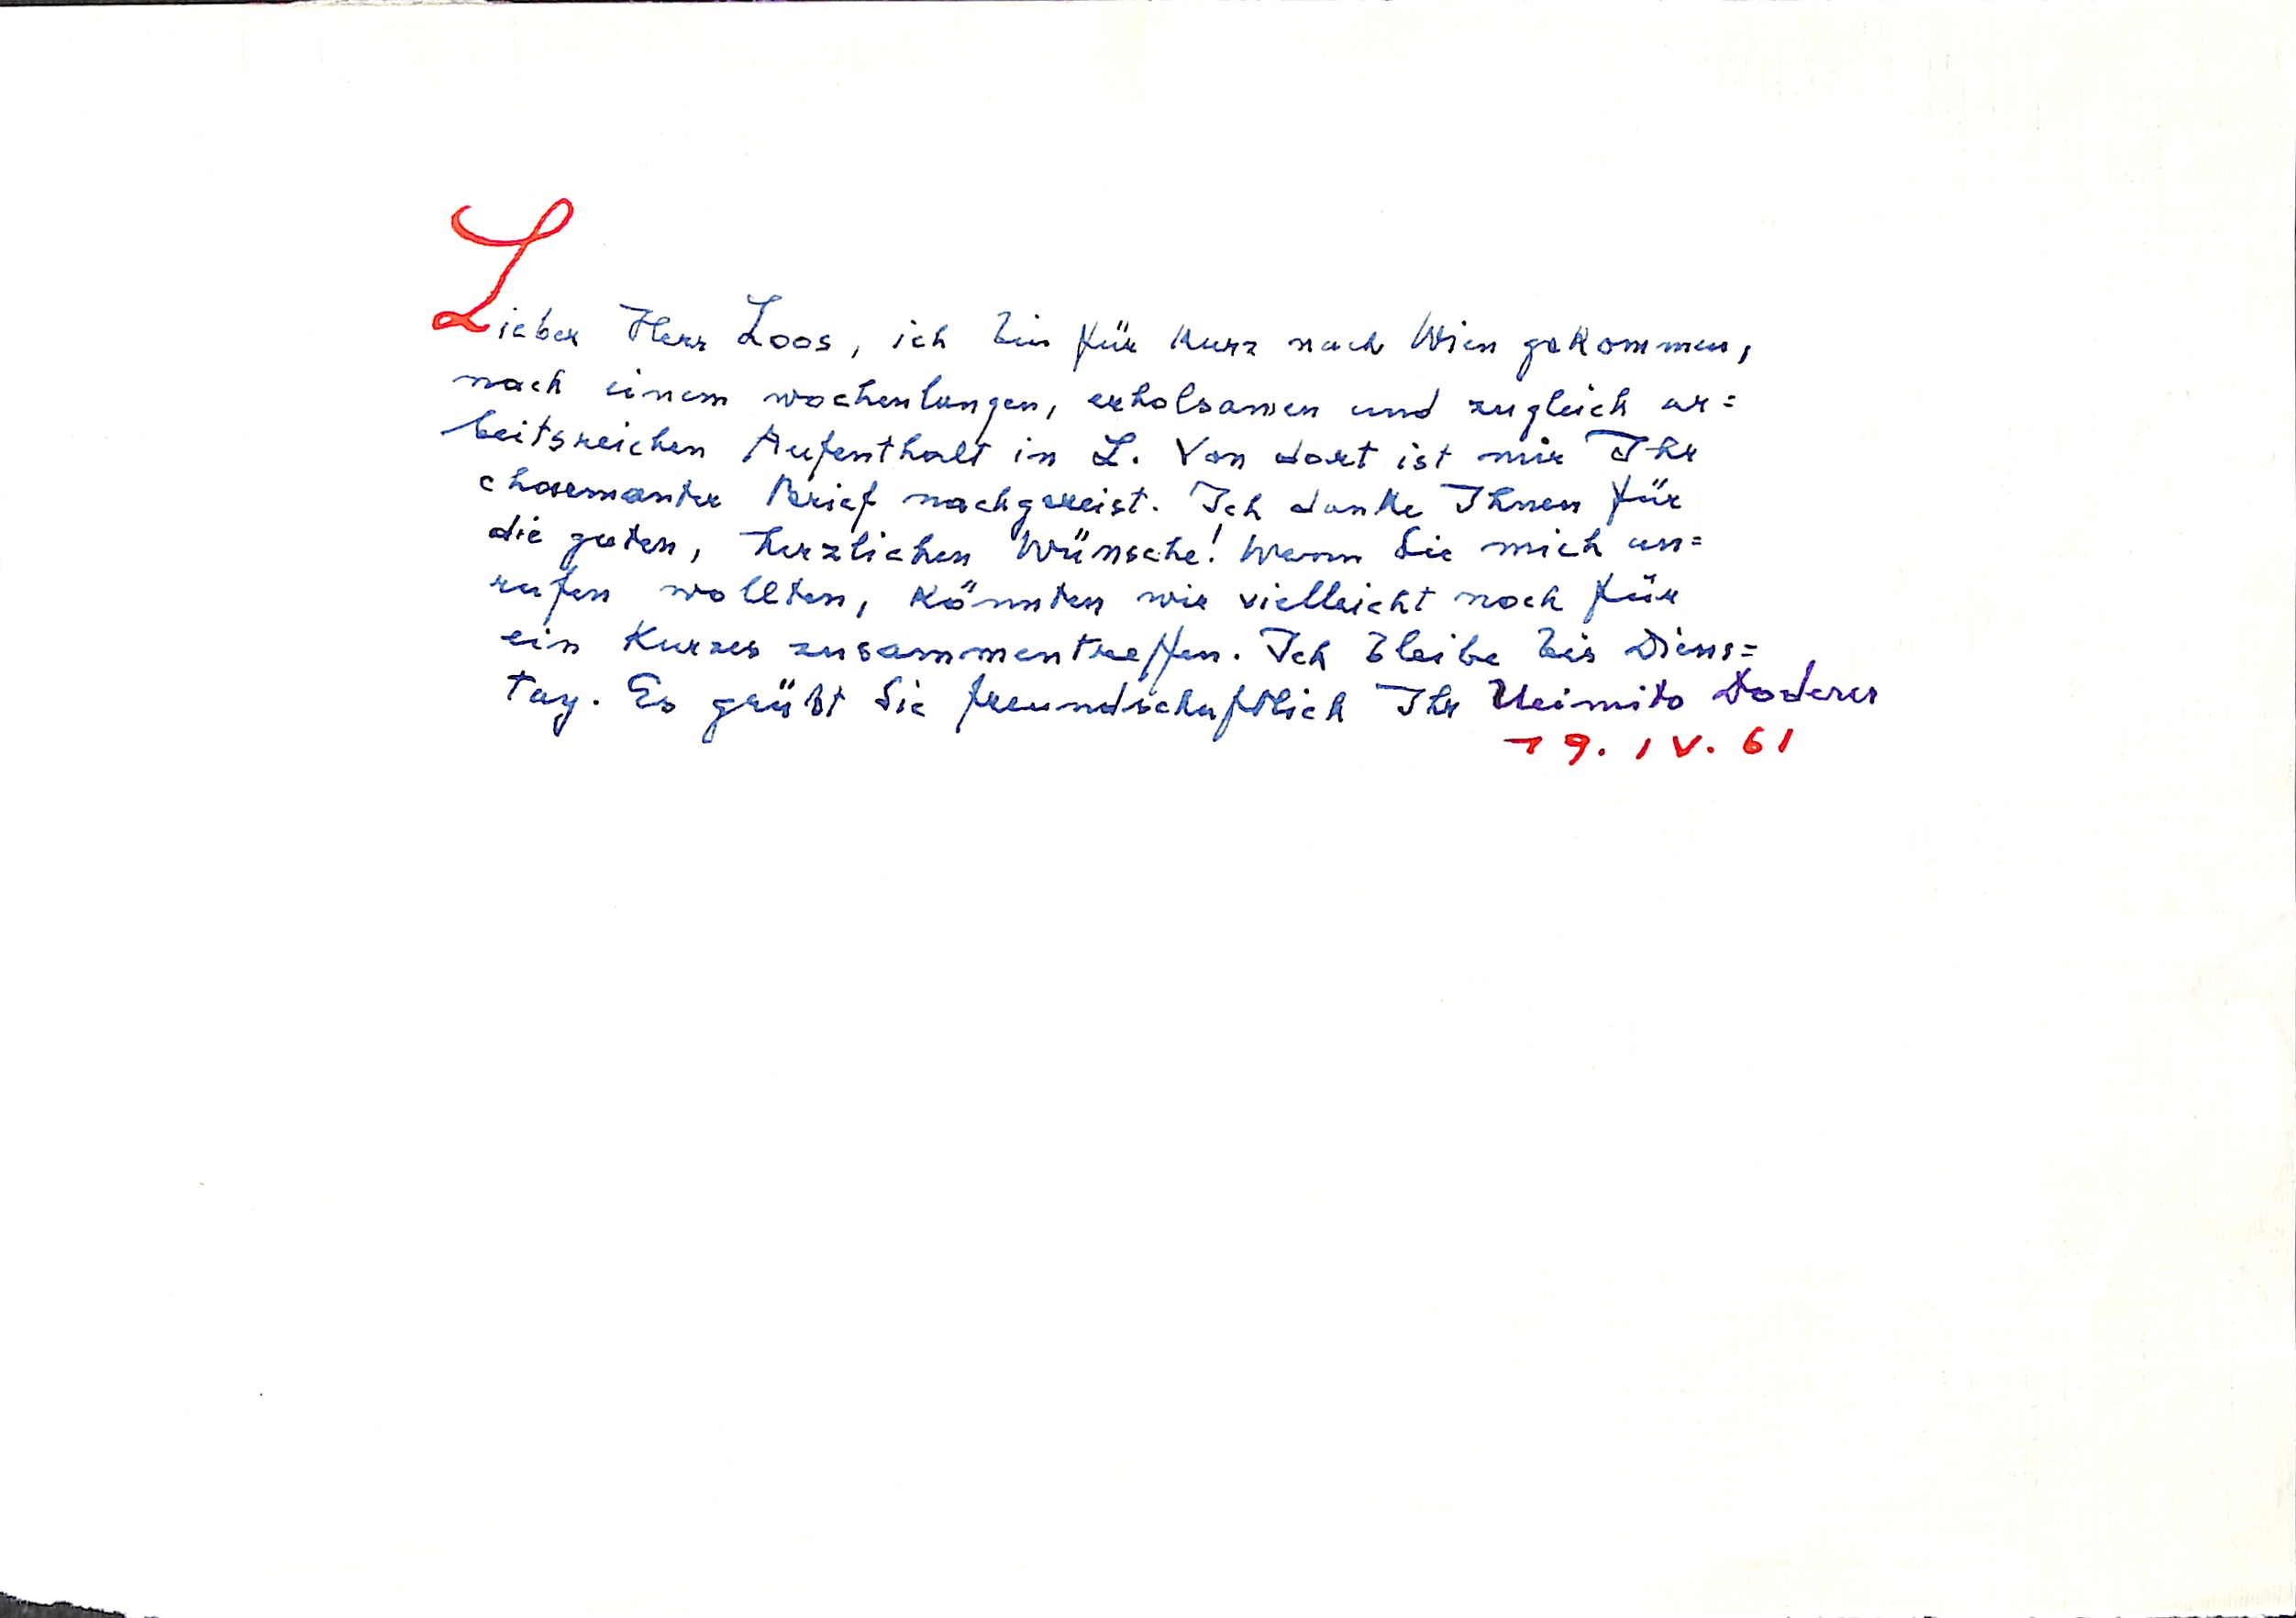 Lieber Herr Loos, ich bin für kurz nach Wien gekommen,
nach einem wochenlangen, erholsamen und zugleich ar=
beitsreichen Aufenthalt in L. Von dort ist mir Ihr
charmanter Brief nachgereist. Ich danke Ihnen für
die guten, herzlichen Wünsche! Wenn Sie mich an=
rufen wollten, könnten wir vielleicht noch für
ein Kurzes zusammentreffen. Ich bleibe bis Diens=
tag. Es grüßt Sie freundschaftlich Ihr Heimito Doderer
19. IV. 61